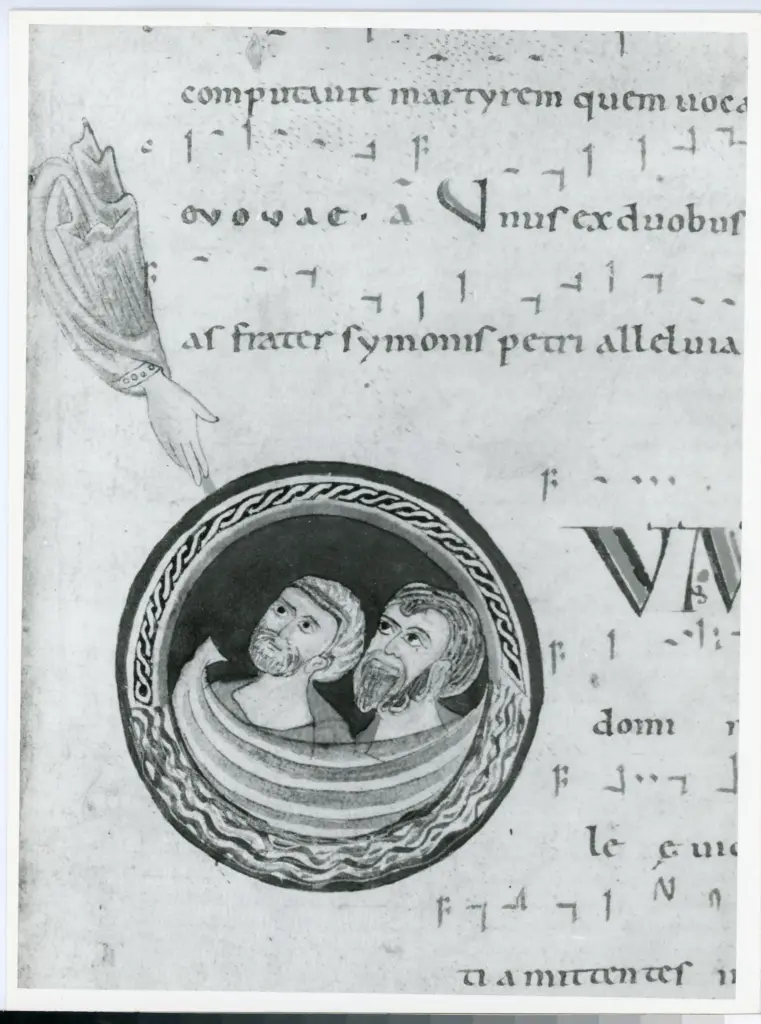 computauit martyrem quem uoca
ovovae · a Vnus ex duobus
as frater symonis petri alleluia
VN
domi
le
ti amittentes